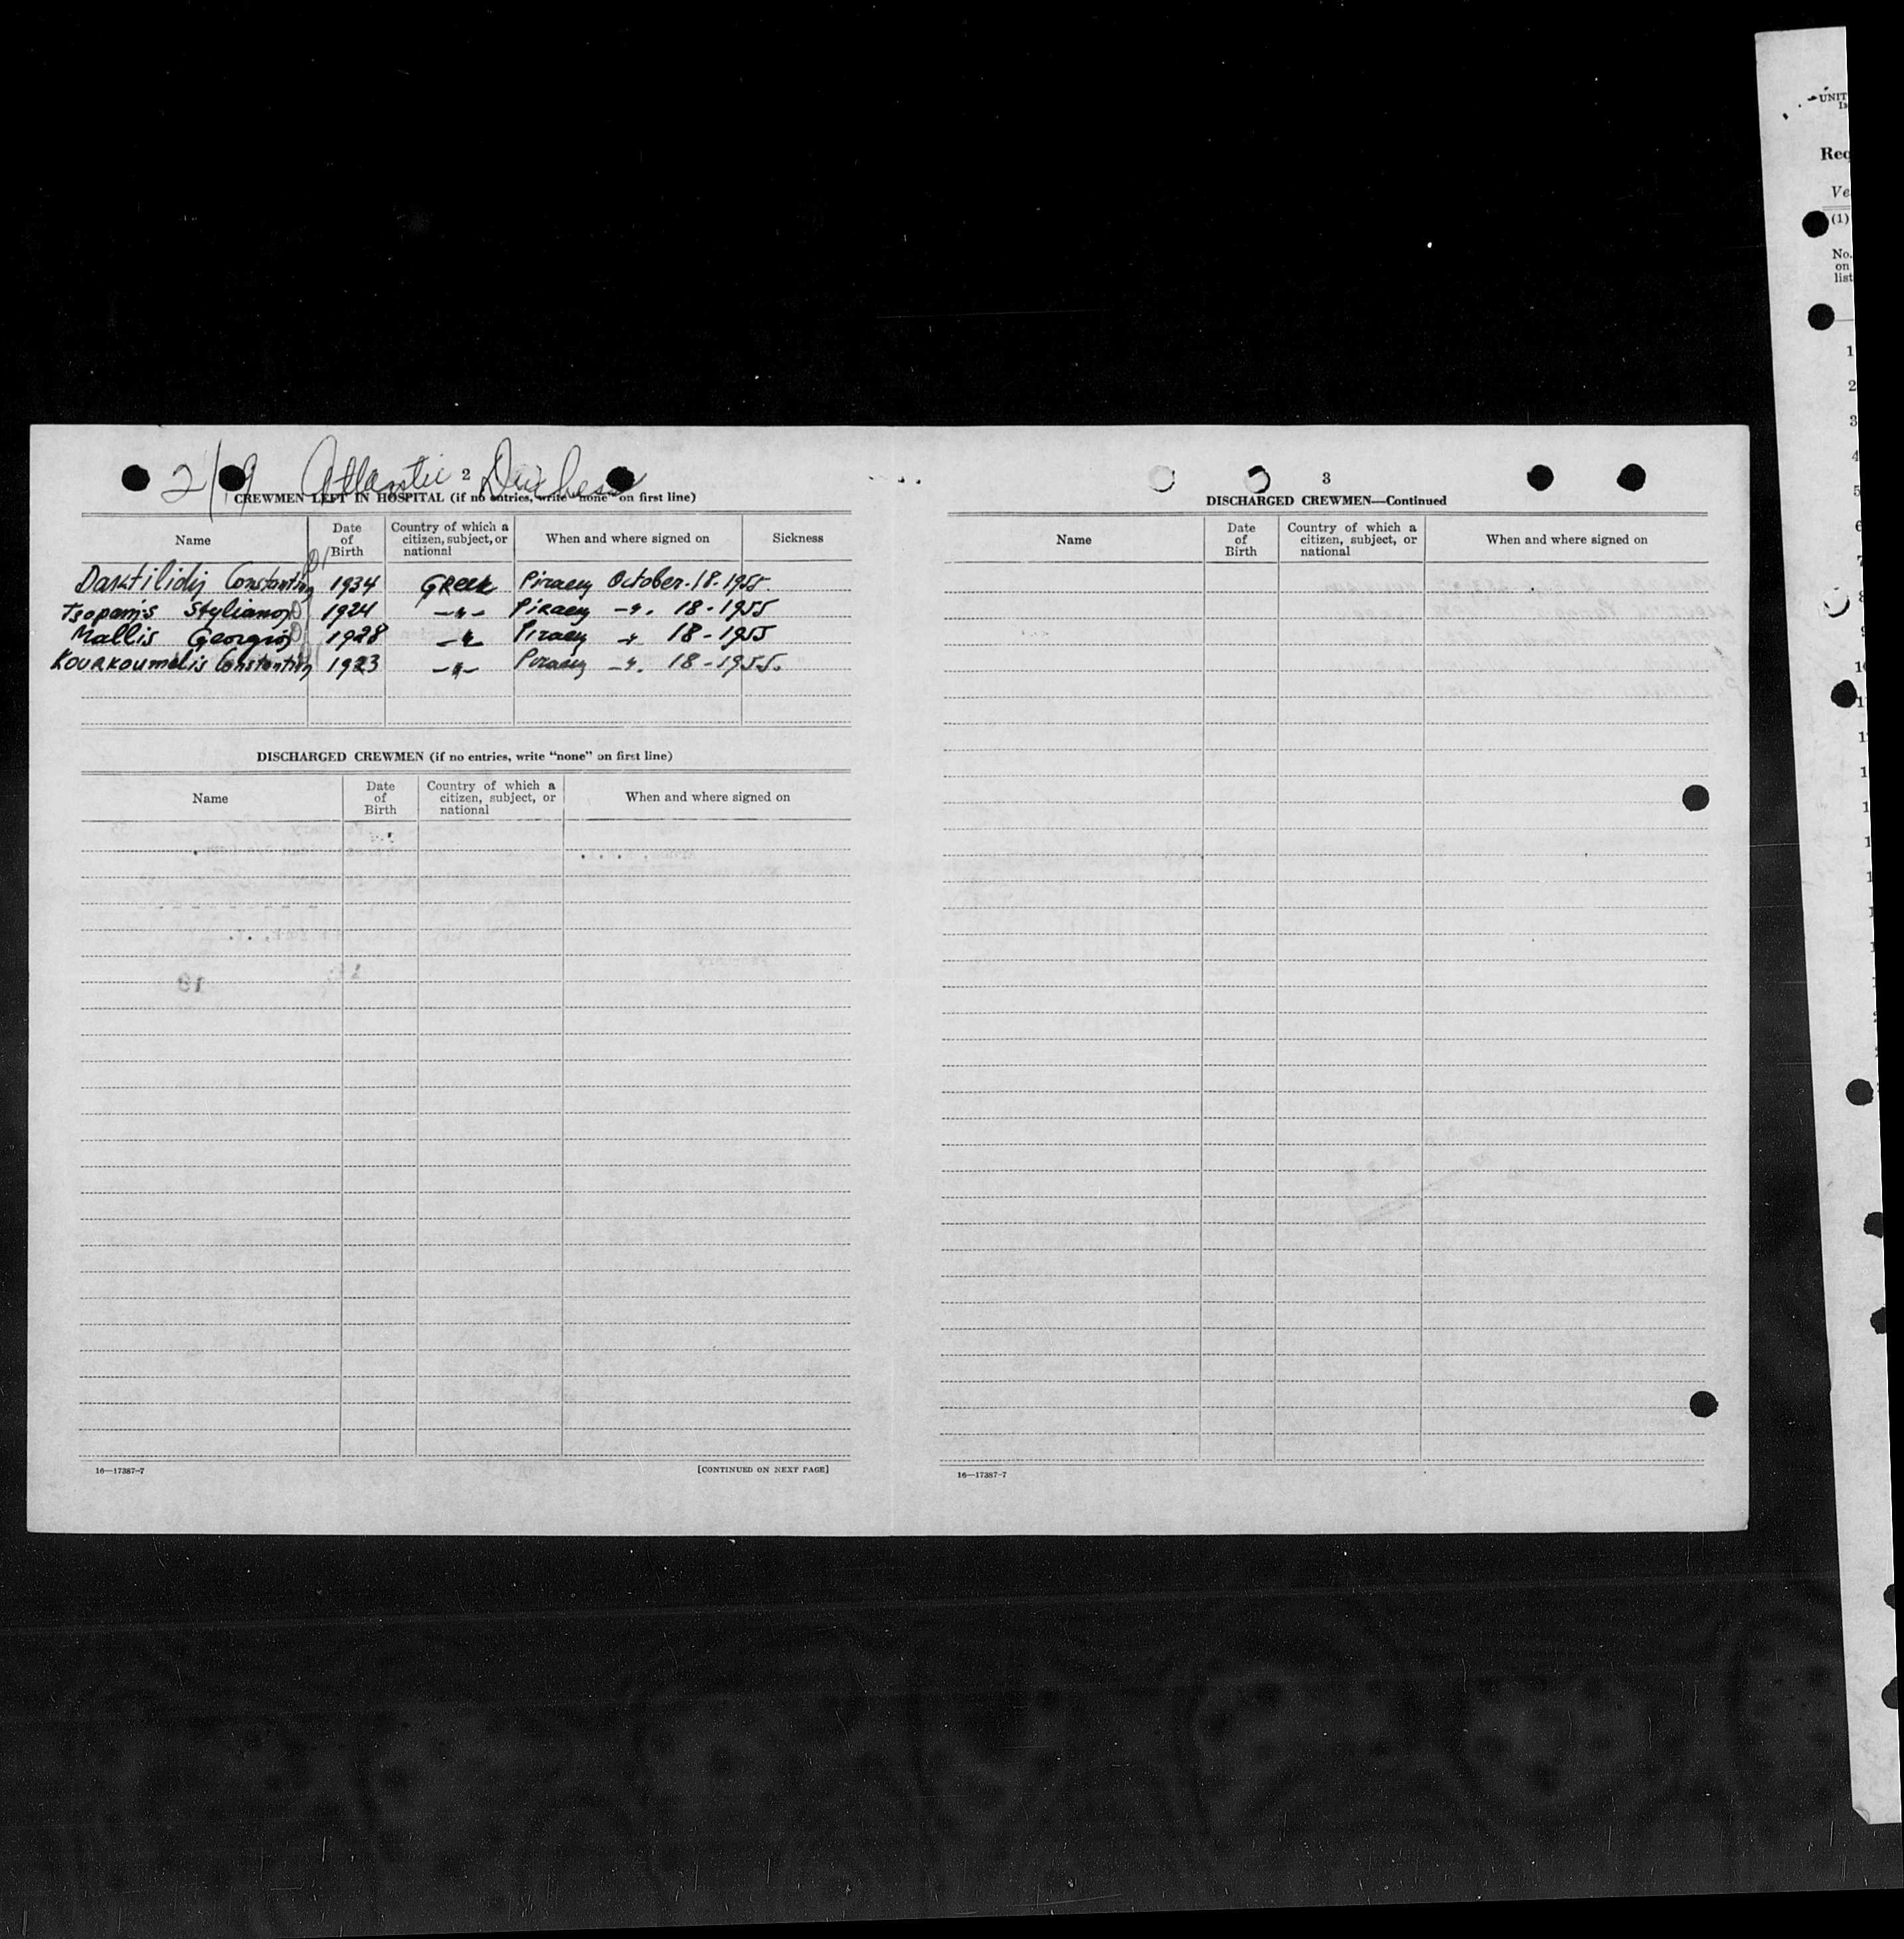 2/9 Atlantic Duchess
2
CREWMEN LEFT IN HOSPITAL (if no entries, write "none" on first line)
Name
Date of Birth
Country of which a citizen, subject, or national
When and where signed on
Sickness
Constantin 1934 Greek October-18-1955
Stylianos 1924 -"- -". 18-1955
Mallis Georgios 1928 -"- -". 18-1955
Kourkoumelis Constantin 1923 -"- -". 18-1955.
DISCHARGED CREWMEN (if no entries, write "none" on first line)
Name
Date of Birth
Country of which a citizen, subject, or national
When and where signed on
16—17387-7
[CONTINUED ON NEXT PAGE]
3
DISCHARGED CREWMEN—Continued
Name
Date of Birth
Country of which a citizen, subject, or national
When and where signed on
16—17387-7
UNIT
Req
Ve
(1)
No.
on
list
1
2
3
4
5
6
7
8
9
10